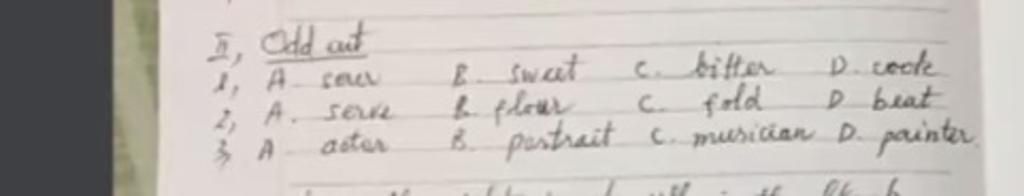 II, Odd out
1, A. sour B. sweet C. bitter D. cook
2, A. serve B. flour C. fold D beat
3, A actor B. portrait C. musician D. painter